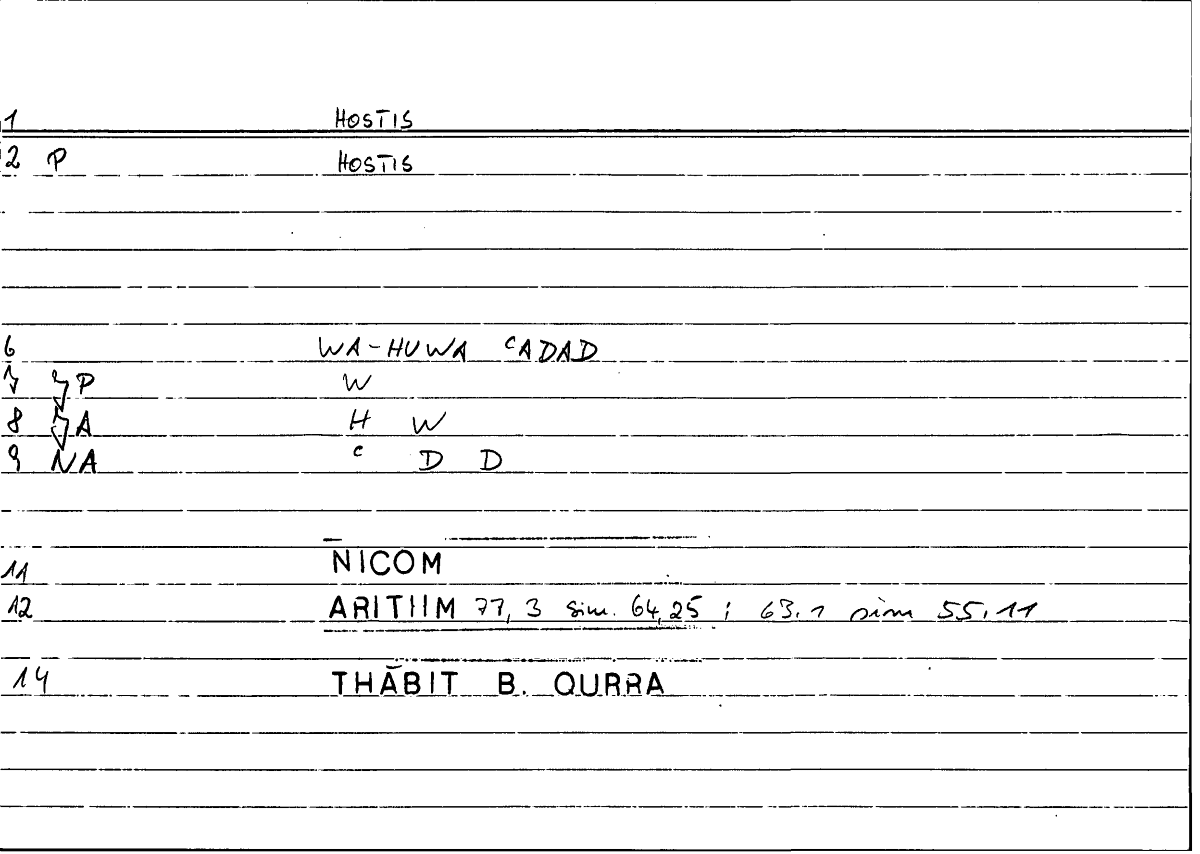 1 HOSTIS
2 P HOSTIS
6 WA-HUWA ᶜADAD
7 P W
8 A H W
9 NA ᶜ D D
11 NICOM
12 ARITHM 77, 3 sim. 64,25 ; 63.1 sim 55.11
14 THĀBIT B. QURRA